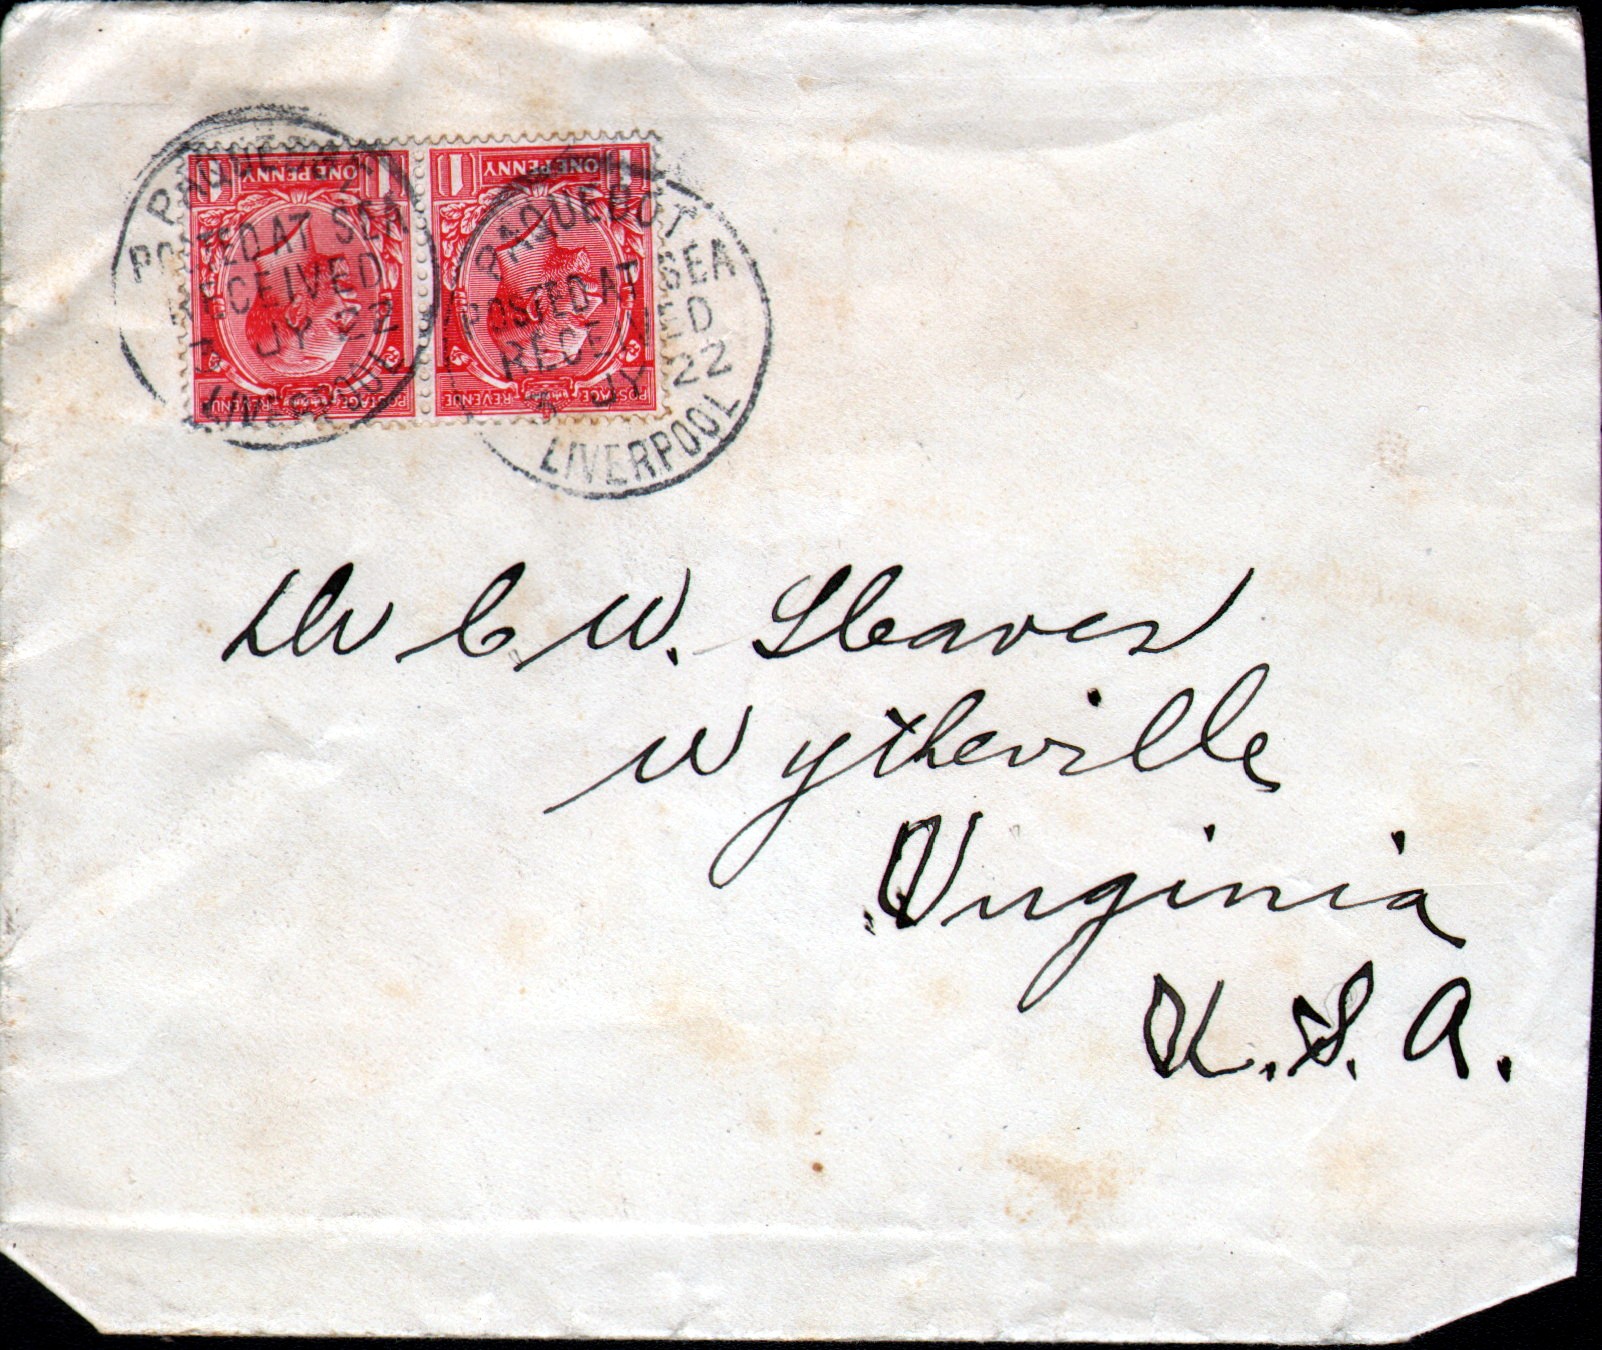 PAQUEBOT
POSTED AT SEA
RECEIVED
3 JY 22
LIVERPOOL
PAQUEBOT
POSTED AT SEA
RECEIVED
3 JY 22
LIVERPOOL
1 ONE PENNY 1
POSTAGE REVENUE
1 ONE PENNY 1
POSTAGE REVENUE
Dr C W. Cleaves
Wytheville
Virginia
U.S.A.